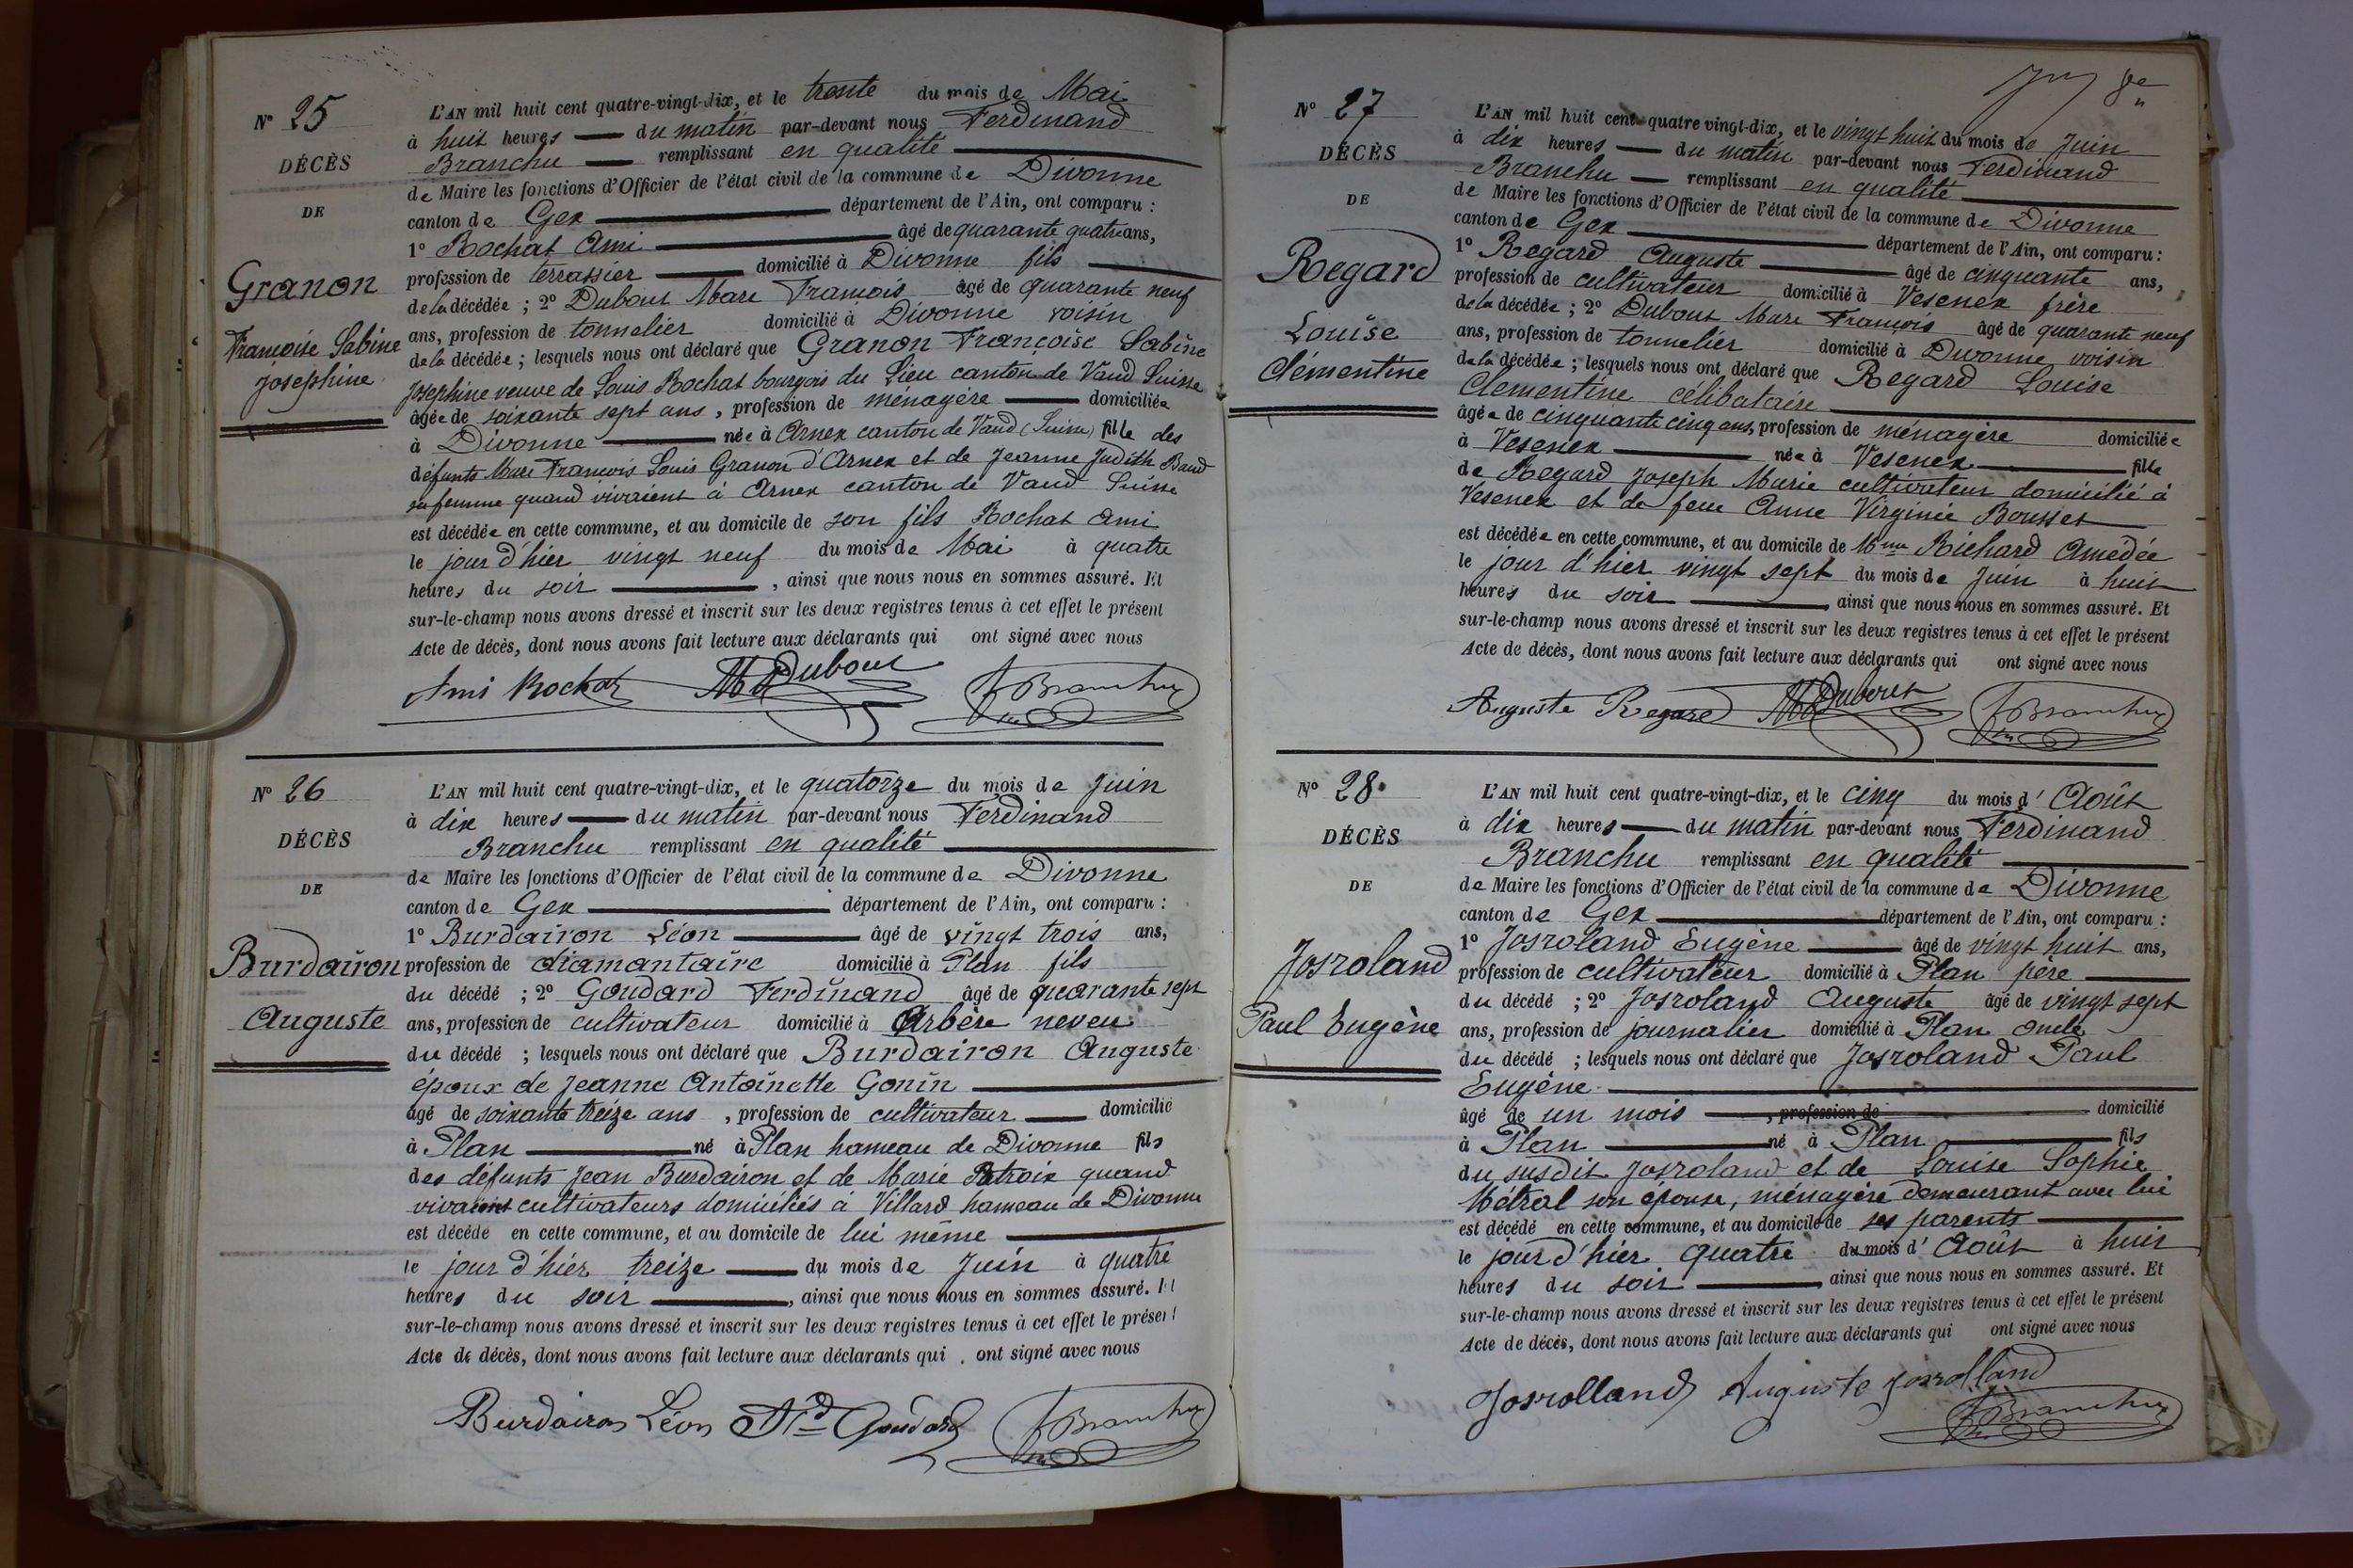 N° 25
DÉCÈS
DE
Granon
Françoise Sabine
Joséphine
L'AN mil huit cent quatre-vingt-dix, et le trente du mois de Mai
à huit heures du matin par-devant nous Ferdinand
Branchu remplissant en qualité
de Maire les fonctions d'Officier de l'état civil de la commune de Divonne
canton de Gex département de l'Ain, ont comparu :
1° Rochat Ami âgé de quarante quatre ans,
profession de terrassier domicilié à Divonne fils
de la décédée ; 2° Dubout Marc François âgé de quarante neuf
ans, profession de tonnelier domicilié à Divonne voisin
de la décédée ; lesquels nous ont déclaré que Granon Françoise Sabine
Joséphine veuve de Louis Rochat bourgeois du Lieu canton de Vaud Suisse
âgée de soixante sept ans, profession de ménagère domiciliée
à Divonne née à Arnex canton de Vaud (Suisse) fille des
défunts Marc François Louis Granon d'Arnex et de Jeanne Judith Baud
sa femme quand vivaient à Arnex canton de Vaud Suisse
est décédée en cette commune, et au domicile de son fils Rochat Ami
le jour d'hier vingt neuf du mois de Mai à quatre
heures du soir , ainsi que nous nous en sommes assuré. Et
sur-le-champ nous avons dressé et inscrit sur les deux registres tenus à cet effet le présent
Acte de décès, dont nous avons fait lecture aux déclarants qui ont signé avec nous
Ami Rochat M Dubout F Branchu
N° 26
DÉCÈS
DE
Burdairon
Auguste
L'AN mil huit cent quatre-vingt-dix, et le quatorze du mois de Juin
à dix heures du matin par-devant nous Ferdinand
Branchu remplissant en qualité
de Maire les fonctions d'Officier de l'état civil de la commune de Divonne
canton de Gex département de l'Ain, ont comparu :
1° Burdairon Léon âgé de vingt trois ans,
profession de diamantaire domicilié à Plan fils
du décédé ; 2° Goudard Ferdinand âgé de quarante sept
ans, profession de cultivateur domicilié à Arbère neveu
du décédé ; lesquels nous ont déclaré que Burdairon Auguste
époux de Jeanne Antoinette Gonin
âgé de soixante treize ans , profession de cultivateur domicilié
à Plan né à Plan hameau de Divonne fils
des défunts Jean Burdairon et de Marie Patroix quand
vivaient cultivateurs domiciliés à Villard hameau de Divonne
est décédé en cette commune, et au domicile de lui même
le jour d'hier treize du mois de Juin à quatre
heures du soir , ainsi que nous nous en sommes assuré. Et
sur-le-champ nous avons dressé et inscrit sur les deux registres tenus à cet effet le présent
Acte de décès, dont nous avons fait lecture aux déclarants qui ont signé avec nous
Burdairon Léon Fd Goudard F Branchu
N° 27
DÉCÈS
DE
Regard
Louise
Clémentine
L'AN mil huit cent quatre vingt-dix, et le vingt huit du mois de Juin
à dix heures du matin par-devant nous Ferdinand
Branchu remplissant en qualité
de Maire les fonctions d'Officier de l'état civil de la commune de Divonne
canton de Gex département de l'Ain, ont comparu :
1° Regard Auguste âgé de cinquante ans,
profession de cultivateur domicilié à Vesenex frère
de la décédée ; 2° Dubout Marc François âgé de quarante neuf
ans, profession de tonnelier domicilié à Divonne voisin
de la décédée ; lesquels nous ont déclaré que Regard Louise
Clémentine célibataire
âgée de cinquante cinq ans, profession de ménagère domiciliée
à Vesenex née à Vesenex fille
de Regard Joseph Marie cultivateur domicilié à
Vesenex et de feue Anne Virginie Bousset
est décédée en cette commune, et au domicile de Mme Richard Amédée
le jour d'hier vingt sept du mois de Juin à huit
heures du soir , ainsi que nous nous en sommes assuré. Et
sur-le-champ nous avons dressé et inscrit sur les deux registres tenus à cet effet le présent
Acte de décès, dont nous avons fait lecture aux déclarants qui ont signé avec nous
Auguste Regard M Dubout F Branchu
N° 28
DÉCÈS
DE
Josroland
Paul Eugène
L'AN mil huit cent quatre-vingt-dix, et le cinq du mois d'Août
à dix heures du matin par-devant nous Ferdinand
Branchu remplissant en qualité
de Maire les fonctions d'Officier de l'état civil de la commune de Divonne
canton de Gex département de l'Ain, ont comparu :
1° Josroland Eugène âgé de vingt huit ans,
profession de cultivateur domicilié à Plan père
du décédé ; 2° Josroland Auguste âgé de vingt sept
ans, profession de journalier domicilié à Plan oncle
du décédé ; lesquels nous ont déclaré que Josroland Paul
Eugène
âgé de un mois , profession de domicilié
à Plan né à Plan fils
du susdit Josroland et de Louise Sophie
Métral son épouse, ménagère demeurant avec lui
est décédé en cette commune, et au domicile de ses parents
le jour d'hier quatre du mois d'Août à huit
heures du soir , ainsi que nous nous en sommes assuré. Et
sur-le-champ nous avons dressé et inscrit sur les deux registres tenus à cet effet le présent
Acte de décès, dont nous avons fait lecture aux déclarants qui ont signé avec nous
Josrolland Auguste Josrolland
F Branchu